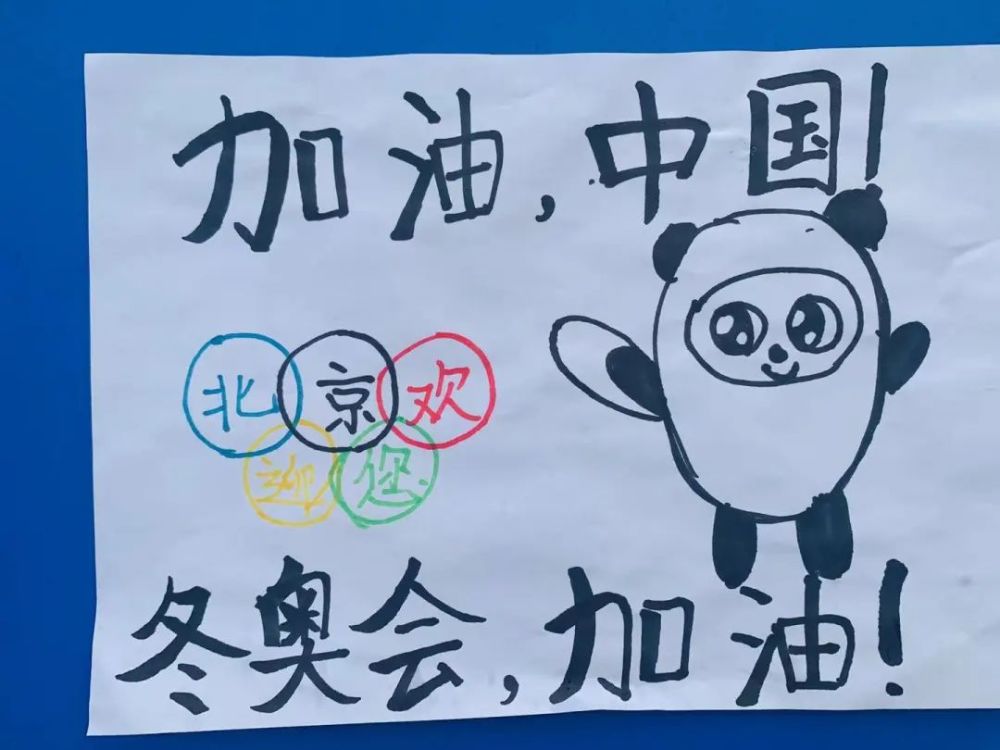 加油,中国!
北京欢
迎您
冬奥会,加油!